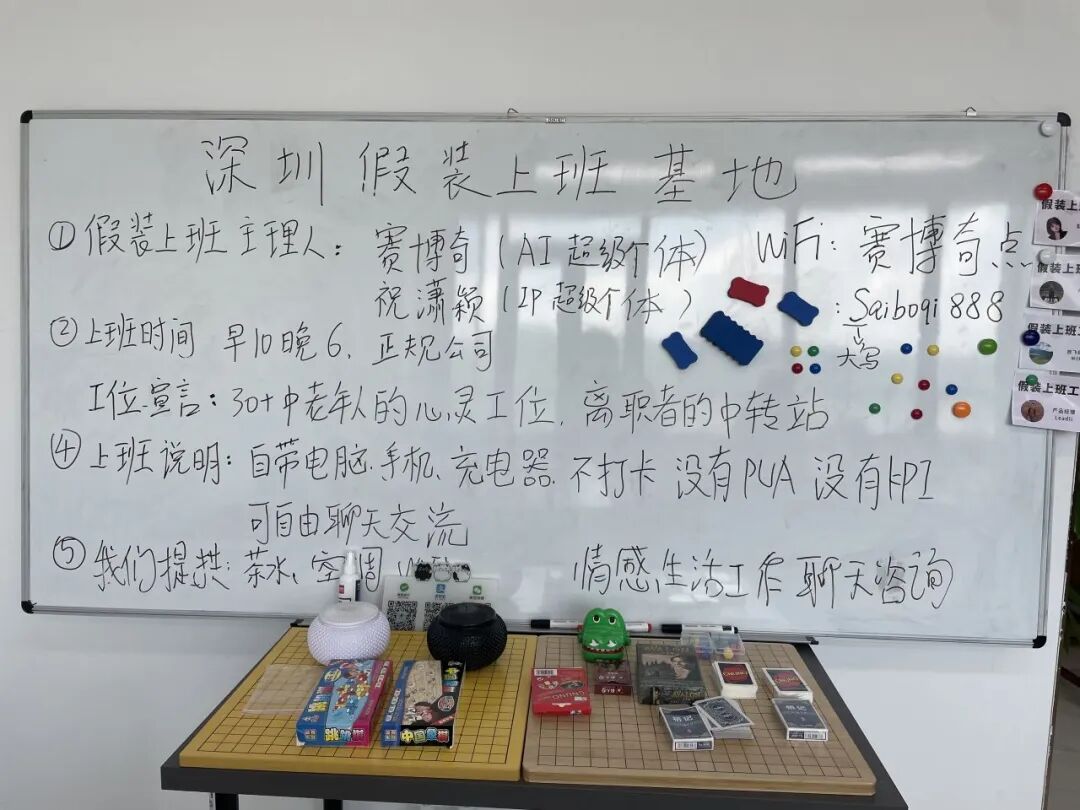 深圳假装上班基地
①假装上班主理人：赛博奇（AI超级个体）
祝潇颖（IP超级个体）
WiFi：赛博奇点
：Saiboqi888
大写
②上班时间 早10晚6、正规公司
工位宣言：30+中老年人的心灵工位，离职者的中转站
④上班说明：自带电脑、手机、充电器 不打卡 没有PUA 没有KPI
可自由聊天交流
⑤我们提供：茶水、空调
情感生活工作聊天咨询
假装上
假装上班
假装上班工
假装上班工
产品经理
跳跳棋
中国象棋
AVALON